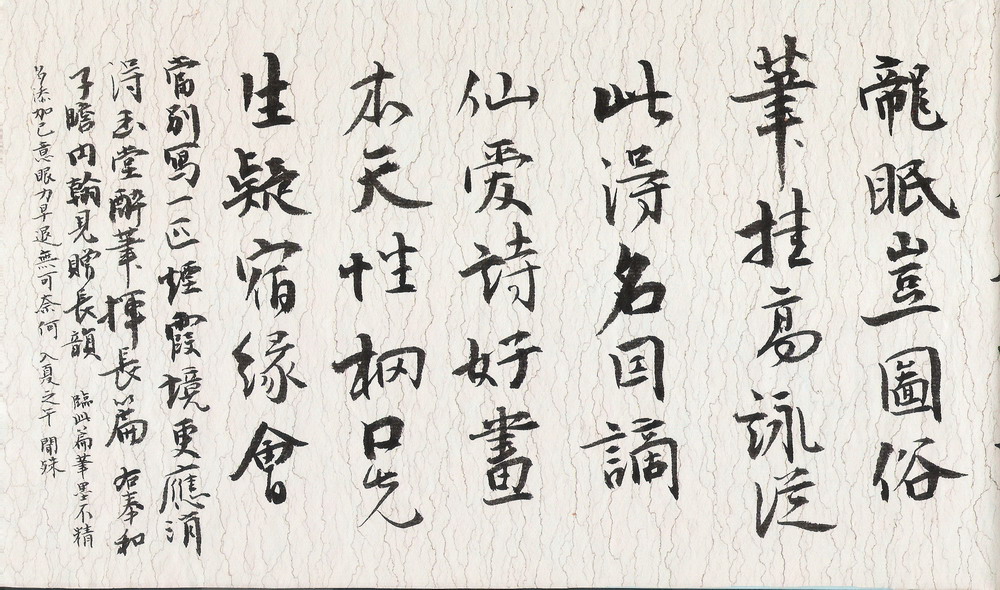 龍眠豈圖俗
筆挂高詠從
此得名因謫
仙愛詩好畫
本天性輞口先
生疑宿緣會
當別寫一匹煙霞境更應消
得玉堂醉筆揮長篇 右奉和
子瞻内翰見贈長韻 臨此篇筆墨不精
添加己意眼力早退無可奈何 入夏之午